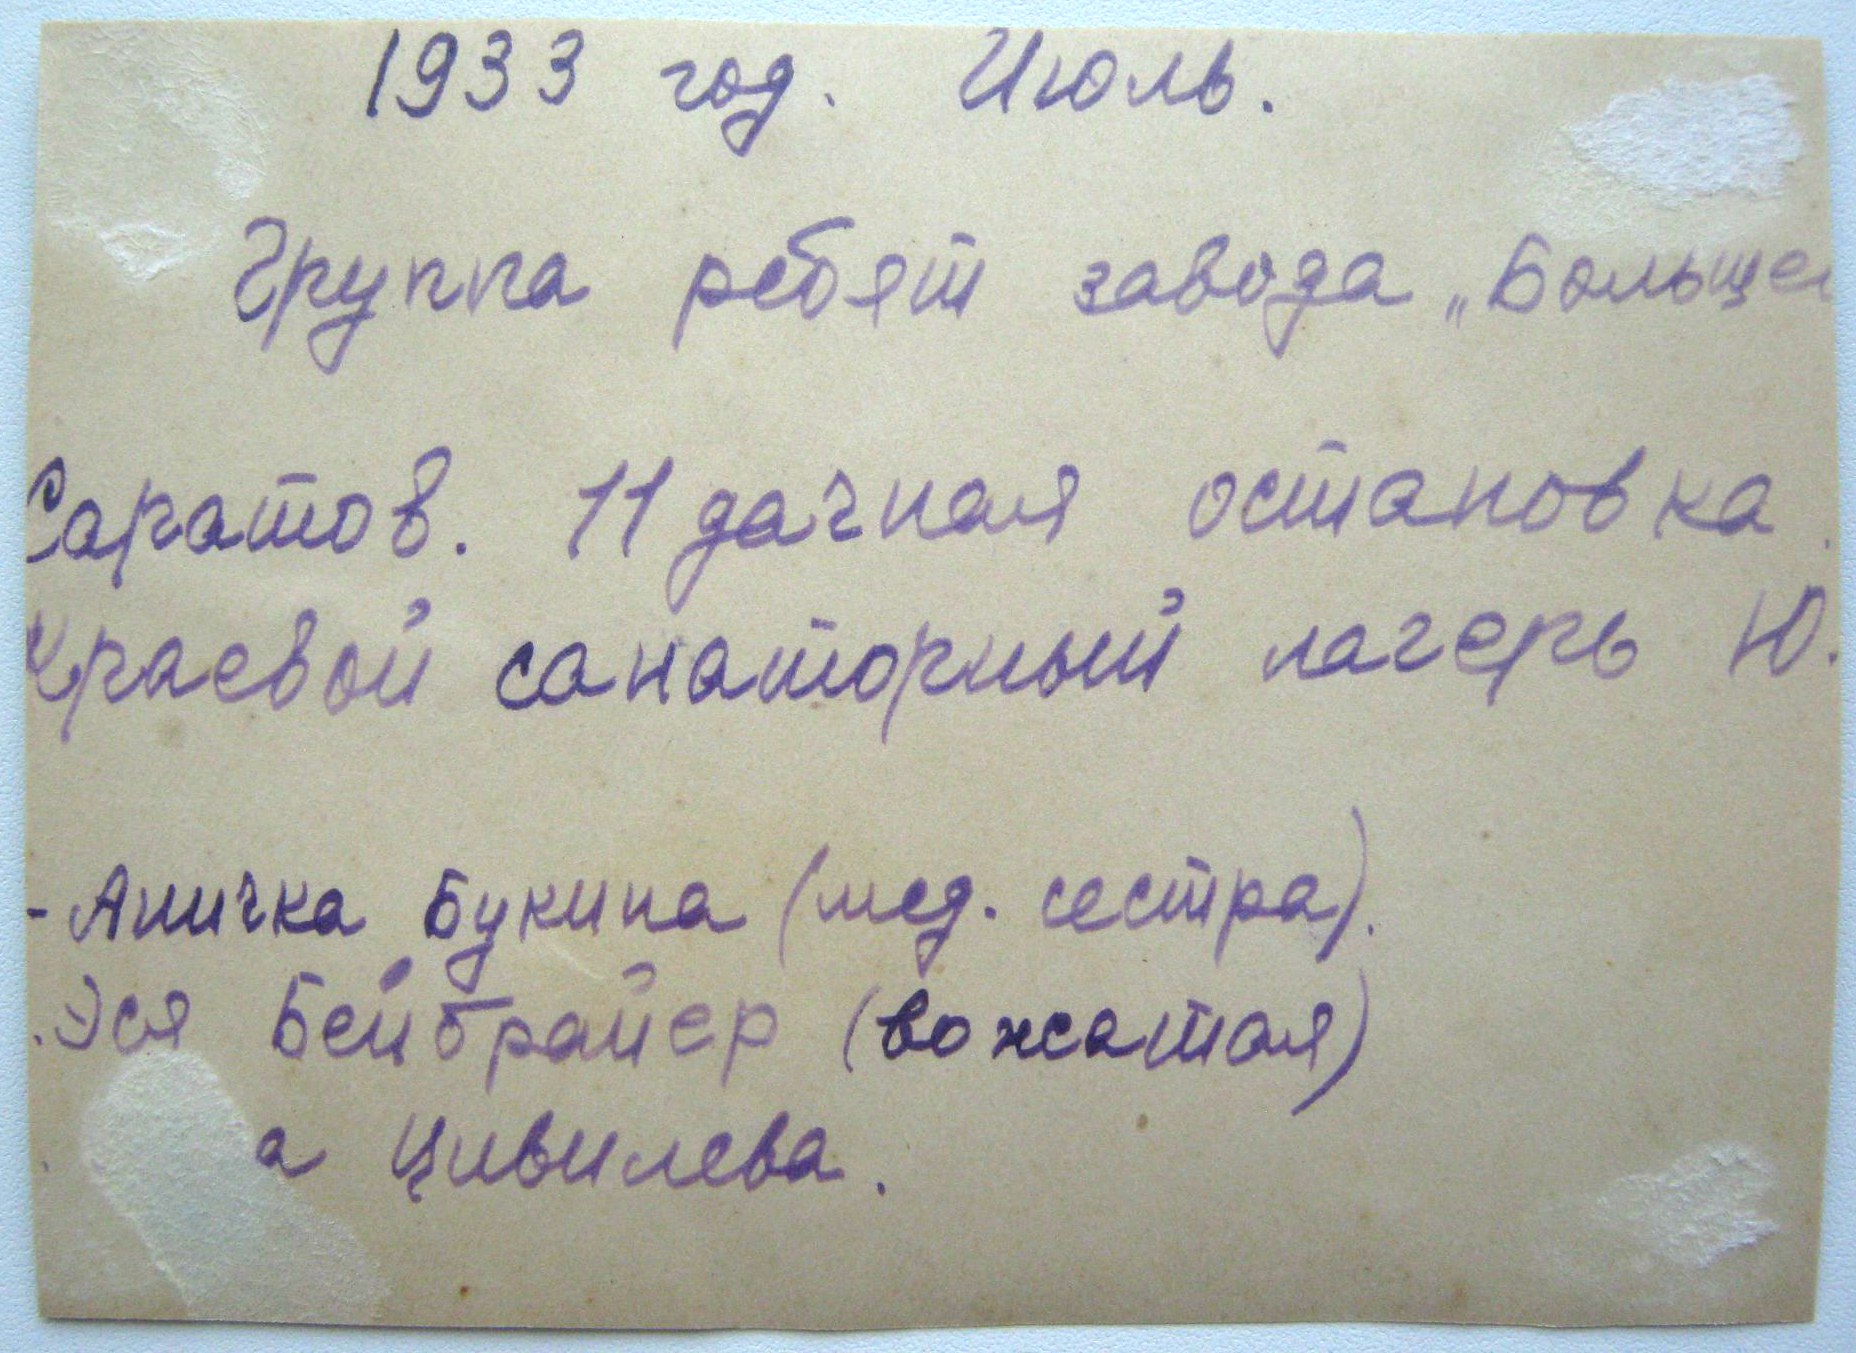 1933 год. Июль.
Группа ребят завода „Больше
Саратов. 11 дачная остановка.
Краевой санаторный лагерь Ю.
- Аничка Букина (мед. сестра).
. Эся Бейбрайер (вожатая)
а Цивилева.